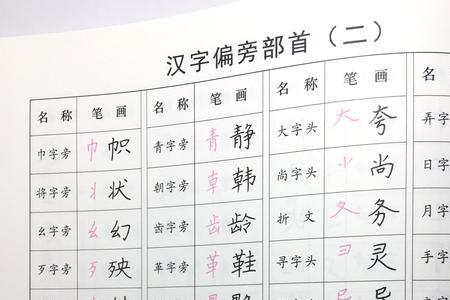 汉字偏旁部首（二）
名称 笔画 名称 笔画 名称 笔画 名
巾字旁 巾 帜 青字旁 青 静 大字头 大 夸 弄字
将字旁 丬 状 朝字旁 龺 韩 尚字头 ⺌ 尚 日字
幺字旁 幺 幻 齿字旁 齿 龄 折文 夂 务 月字
歹字旁 歹 殃 革字旁 革 鞋 寻字头 彐 灵 手字